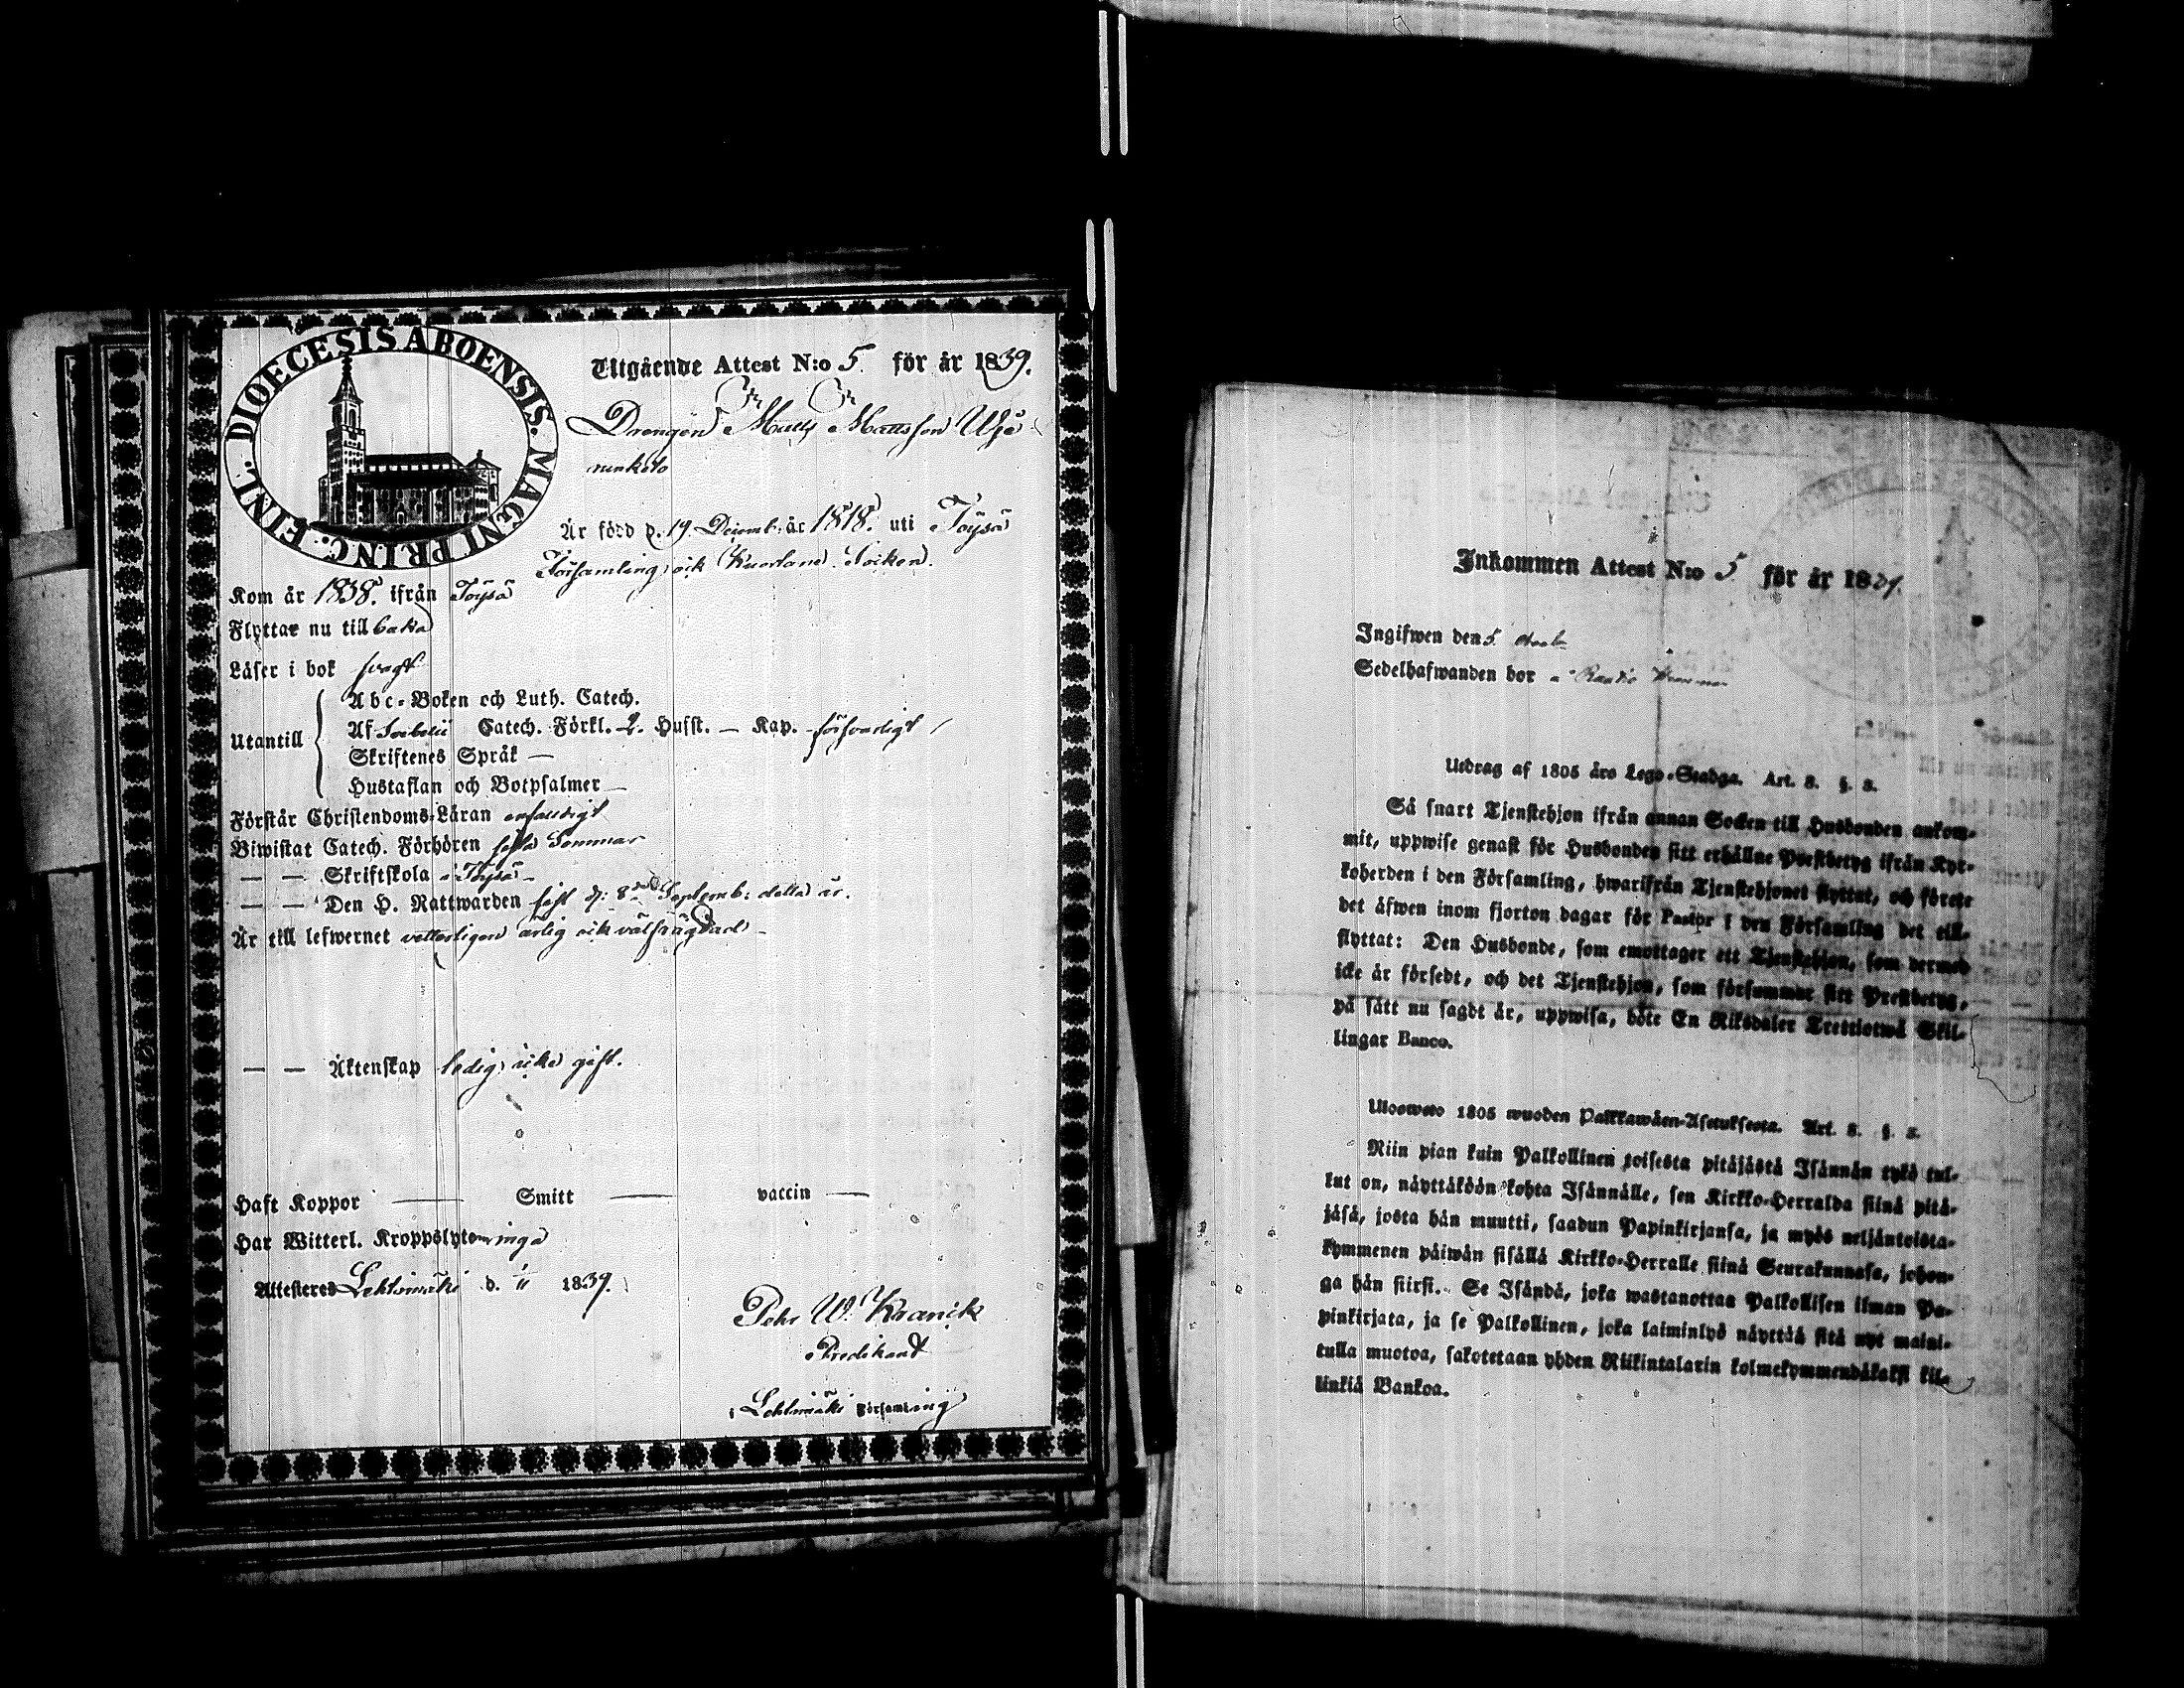 DIOECESIS ABOENSIS. MAGNI PRINC. FINL.
Utgående Attest N:o 5. för år 1839.
Drengen Matts Mattsson
Är född d. 19 Decemb. år 1818. uti Töysä
Församling och Kuortane Socken.
Kom år 1838. ifrån Töysä
Flyttar nu till
Läser i bok svagt
Utantill
Abc-Boken och Luth. Catech.
Af Svebelii Catech. Förkl. 2. Husst. — Kap. försvarligt
Skriftenes Språk —
Hustaflan och Botpsalmer —
Förstår Christendoms-Läran enfaldigt
Biwistat Catech. Förhören sista Sommar
— — Skriftskola i Töysä
— — Den H. Nattwarden sist d: 8de Septemb: detta år.
Är till lefwernet veterligen ärlig och välfrägdad
— — Äktenskap ledig, icke gift.
Haft Koppor — Smitt — vaccin —
Har Witterl. Kroppslyte inga
Attesteras Lehtimäki d. 1839.
Pehr W. Kranck
Predikant
i Lehtimäki Församling
Inkommen Attest N:o 5. för år 1839.
Ingifwen den 5.
Sedelhafwanden bor
Utdrag af 1805 års Lego-Stadga. Art. 3. §. 2.
Så snart Tjenstehjon ifrån annan Socken till Husbonden ankom-
mit, uppwise genast för Husbonden sitt erhållne Prestbetyg ifrån Kyr-
koherden i den Församling, hwarifrån Tjenstehjonet flyttat, och förete
det äfwen inom fjorton dagar för Pastor i den Församling det till-
flyttat: Den Husbonde, som emottager ett Tjenstehjon, som dermed
icke är försedt, och det Tjenstehjon, som försummar sitt Prestbetyg,
på sätt nu sagdt är, uppwisa, böte En Riksdaler Trettiotwå Skil-
lingar Banco.
Ulosweto 1805 wuoden Palkkawäen-Asetuksesta. Art. 3. §. 2.
Niin pian kuin Palkollinen toisesta pitäjästä Isännän tykö tul-
lut on, näyttäköön kohta Isännälle, sen Kirkko-Herralda siinä pitä-
jäsä, josta hän muutti, saadun Papinkirjansa, ja myös neljäntoista-
kymmenen päiwän sisällä Kirkko-Herralle siinä Seurakunnasa, johon-
ga hän siirsi. Se Isändä, joka wastanottaa Palkollisen ilman Pa-
pinkirjata, ja se Palkollinen, joka laiminlyö näyttää sitä nyt maini-
tulla muotoa, sakotetaan yhden Riikintalarin kolmekymmendäkaksi kil-
linkiä Bankoa.